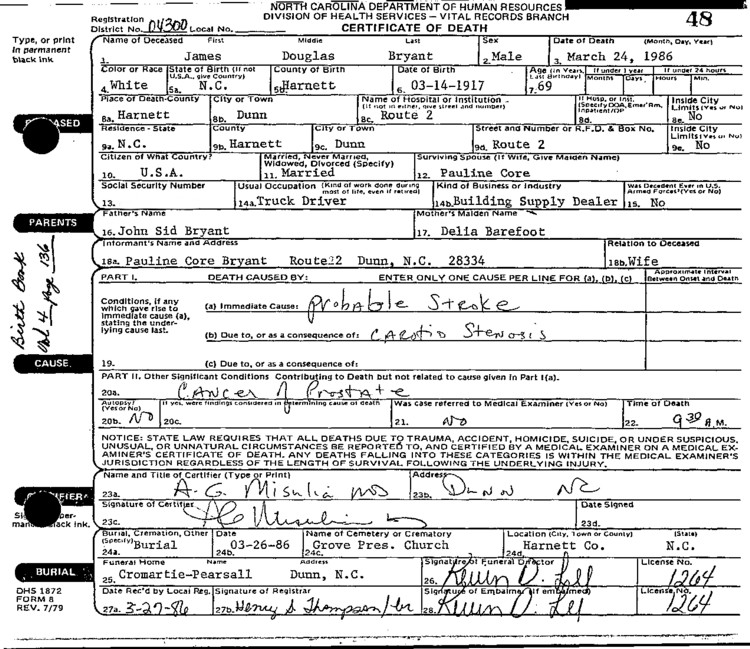 NORTH CAROLINA DEPARTMENT OF HUMAN RESOURCES
DIVISION OF HEALTH SERVICES — VITAL RECORDS BRANCH
CERTIFICATE OF DEATH
48
Registration District No. 04300 Local No.
Type, or print in permanent black ink
Name of Deceased First Middle Last Sex Date of Death (Month, Day, Year)
1. James Douglas Bryant 2. Male 3. March 24, 1986
Color or Race State of Birth (If not U.S.A., give Country) County of Birth Date of Birth Age (In Years, Last Birthday) If under 1 year Months Days If under 24 hours Hours Min.
4. White 5a. N.C. 5b. Harnett 6. 03-14-1917 7. 69
Place of Death-County City or Town Name of Hospital or Institution (If not in either, give street and number) If Hosp. or Inst. (Specify DOA, Emer Rm, Inpatient/OP Inside City Limits (Yes or No)
8a. Harnett 8b. Dunn 8c. Route 2 8d. 8e. No
Residence - State County City or Town Street and Number or R.F.D. & Box No. Inside City Limits (Yes or No)
9a. N.C. 9b. Harnett 9c. Dunn 9d. Route 2 9e. No
Citizen of What Country? Married, Never Married, Widowed, Divorced (Specify) Surviving Spouse (If Wife, Give Maiden Name)
10. U.S.A. 11. Married 12. Pauline Core
Social Security Number Usual Occupation (Kind of work done during most of life, even if retired) Kind of Business or Industry Was Decedent Ever in U.S. Armed Forces? (Yes or No)
13. 14a. Truck Driver 14b. Building Supply Dealer 15. No
PARENTS
Father's Name Mother's Maiden Name
16. John Sid Bryant 17. Delia Barefoot
Informant's Name and Address Relation to Deceased
18a. Pauline Core Bryant Route 2 Dunn, N.C. 28334 18b. Wife
Birth Book Vol 4 page 136
PART I. DEATH CAUSED BY: ENTER ONLY ONE CAUSE PER LINE FOR (a), (b), (c) Approximate Interval Between Onset and Death
Conditions, if any which gave rise to immediate cause (a), stating the underlying cause last.
(a) Immediate Cause: Probable Stroke
(b) Due to, or as a consequence of: Carotid Stenosis
CAUSE
19. (c) Due to, or as a consequence of:
PART II. Other Significant Conditions Contributing to Death but not related to cause given in Part I(a).
20a. Cancer of Prostate
Autopsy? (Yes or No) If yes, were findings considered in determining cause of death Was case referred to Medical Examiner (Yes or No) Time of Death
20b. No 20c. 21. No 22. 9 30 A.M.
NOTICE: STATE LAW REQUIRES THAT ALL DEATHS DUE TO TRAUMA, ACCIDENT, HOMICIDE, SUICIDE, OR UNDER SUSPICIOUS,
UNUSUAL, OR UNNATURAL CIRCUMSTANCES BE REPORTED TO, AND CERTIFIED BY A MEDICAL EXAMINER ON A MEDICAL EX-
AMINER'S CERTIFICATE OF DEATH. ANY DEATHS FALLING INTO THESE CATEGORIES IS WITHIN THE MEDICAL EXAMINER'S
JURISDICTION REGARDLESS OF THE LENGTH OF SURVIVAL FOLLOWING THE UNDERLYING INJURY.
Name and Title of Certifier (Type or Print) Address
23a. A. G. Misulia MD 23b. Dunn NC
Signature of Certifier Date Signed
23c. 23d.
Burial, Cremation, Other (Specify) Date Name of Cemetery or Crematory Location (City, Town or County) (State)
24a. Burial 24b. 03-26-86 24c. Grove Pres. Church 24d. Harnett Co. N.C.
BURIAL
Funeral Home Name Address Signature of Funeral Director License No.
25. Cromartie-Pearsall Dunn, N.C. 26. 1264
DHS 1872
FORM 8
REV. 7/79
Date Rec'd by Local Reg. Signature of Registrar Signature of Embalmer (If embalmed) License No.
27a. 3-27-86 27b. Henry S Thompson 28. 1264